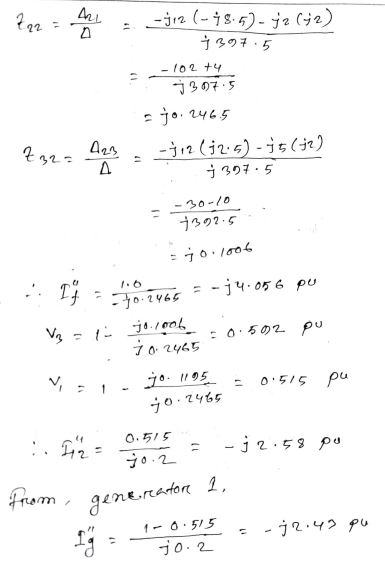 Z22 = Δ21/Δ = (-j12(-j8.5) - j2(j2))/(j397.5)
= (-102 + 4)/(j397.5)
= j0.2465
Z32 = Δ23/Δ = (-j12(j2.5) - j5(j2))/(j397.5)
= (-30-10)/(j397.5)
= j0.1006
∴ I"f = 1.0/(-j0.2465) = -j4.056 pu
V3 = 1 - j0.1006/j0.2465 = 0.592 pu
V1 = 1 - j0.1195/j0.2465 = 0.515 pu
∴ I"12 = 0.515/j0.2 = -j2.58 pu
From, generator 1,
I"g = (1-0.515)/j0.2 = -j2.43 pu